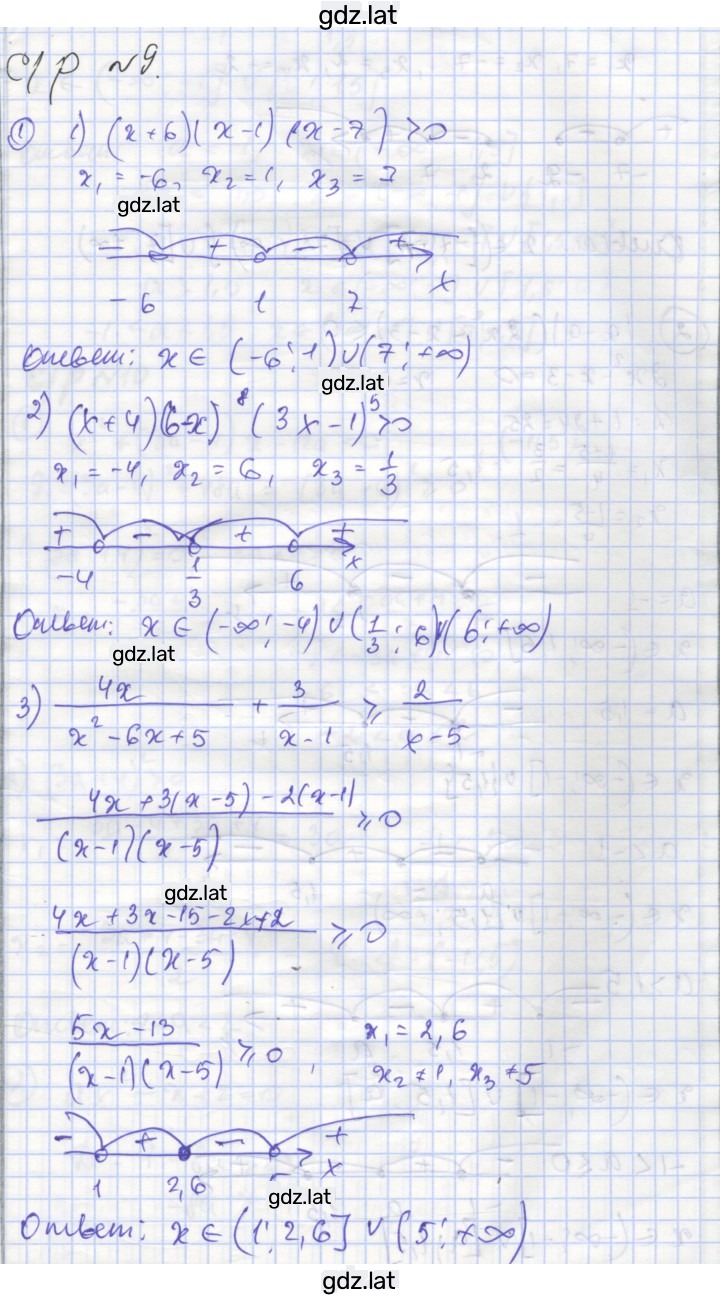 gdz.lat
С/р №9.
① 1) (x+6)(x-1)(x-7)>0
x₁ = -6, x₂ = 1, x₃ = 7
gdz.lat
- + - + x
-6 1 7
Ответ: x ∈ (-6; 1) ∪ (7; +∞)
gdz.lat
2) (x+4)(6-x)⁸(3x-1)⁵>0
x₁ = -4, x₂ = 6, x₃ = 1/3
+ - + + x
-4 1/3 6
Ответ: x ∈ (-∞; -4) ∪ (1/3; 6) ∪ (6; +∞)
gdz.lat
3) 4x/(x²-6x+5) + 3/(x-1) ⩾ 2/(x-5)
(4x+3(x-5)-2(x-1))/((x-1)(x-5)) ⩾ 0
gdz.lat
(4x+3x-15-2x+2)/((x-1)(x-5)) ⩾ 0
(5x-13)/((x-1)(x-5)) ⩾ 0, x₁ = 2,6
x₂ ≠ 1, x₃ ≠ 5
- + - + x
1 2,6
gdz.lat
Ответ: x ∈ (1; 2,6] ∪ (5; +∞)
gdz.lat